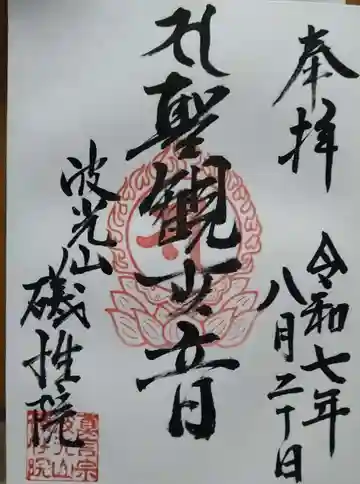 奉拝
令和七年
八月二十日
聖観世音
波光山
磯性院